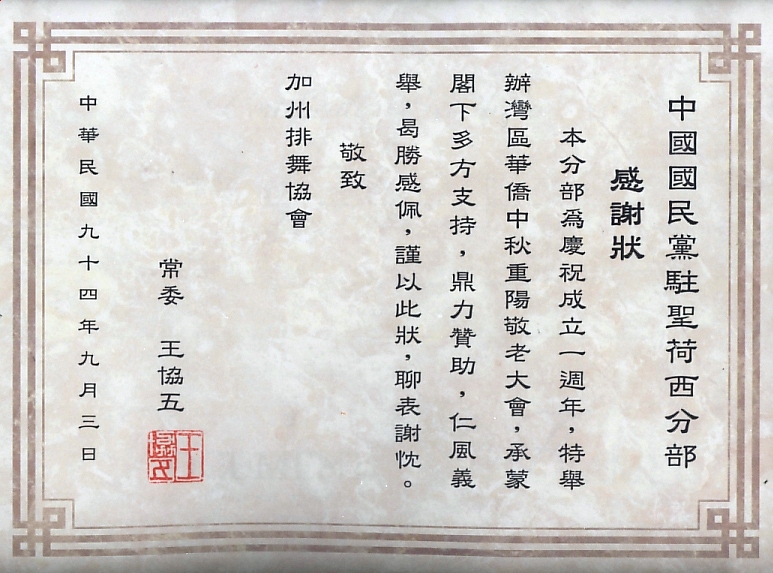 中國國民黨駐聖荷西分部
感謝狀
本分部爲慶祝成立一週年，特舉
辦灣區華僑中秋重陽敬老大會，承蒙
閣下多方支持，鼎力贊助，仁風義
舉，曷勝感佩，謹以此狀，聊表謝忱。
敬致
加州排舞協會
常委　王協五
王協五
中華民國九十四年九月三日